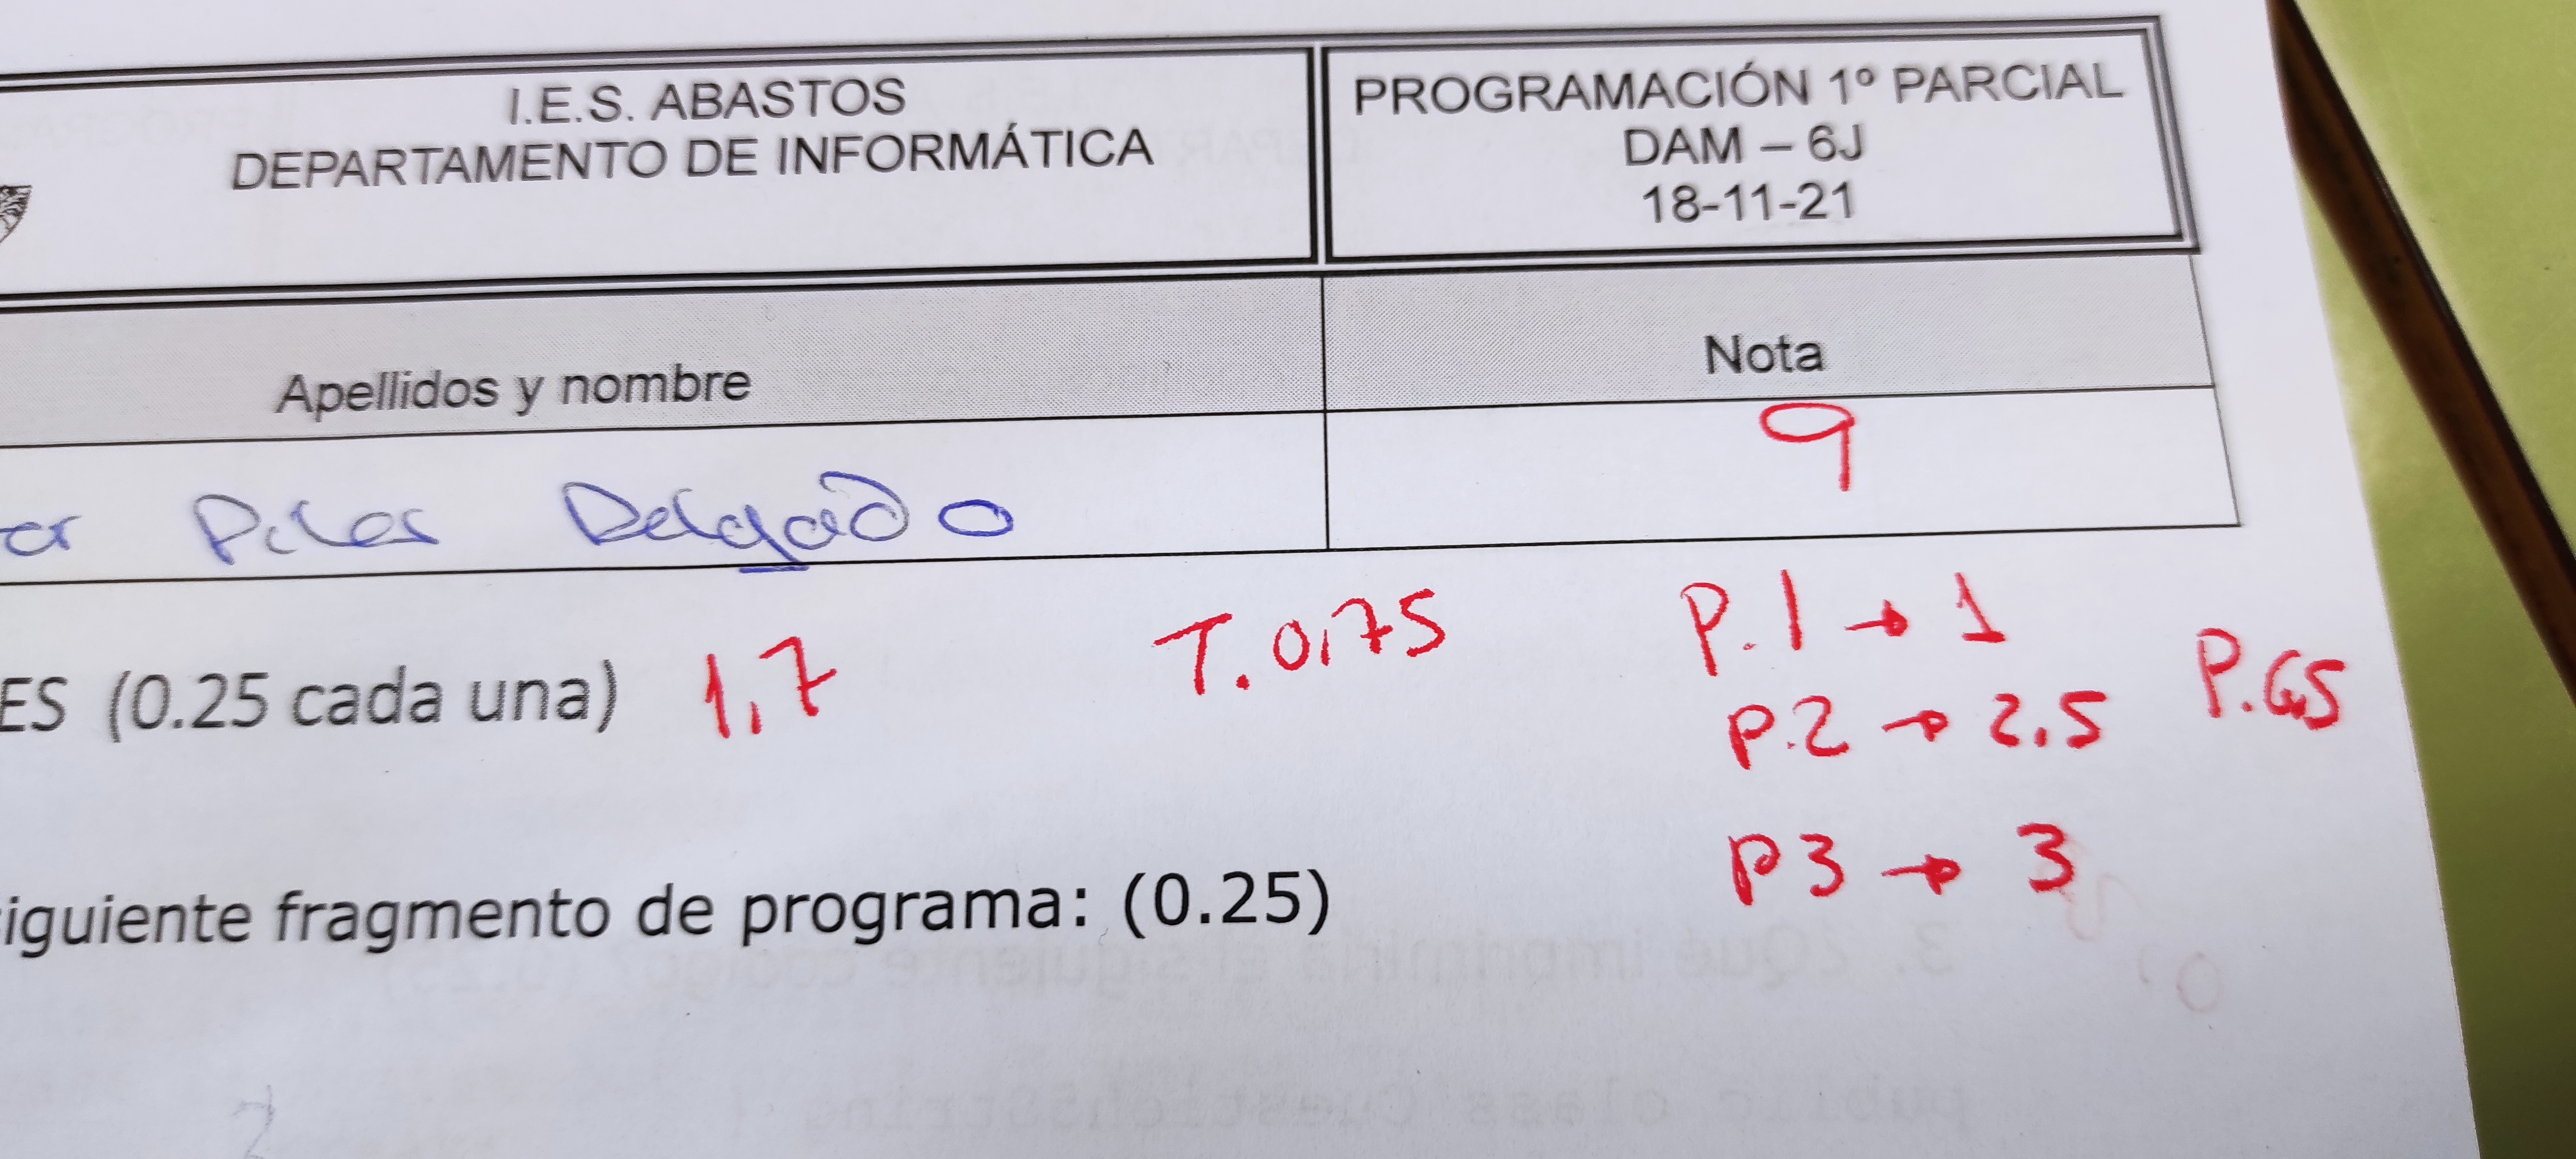 I.E.S. ABASTOS
DEPARTAMENTO DE INFORMÁTICA
PROGRAMACIÓN 1º PARCIAL
DAM – 6J
18-11-21
Apellidos y nombre
Nota
Delgado
9
ES (0.25 cada una) 1,7
T. 0,75
P.1 → 1
P.2 → 2.5
P3 → 3
P. 6,5
siguiente fragmento de programa: (0.25)